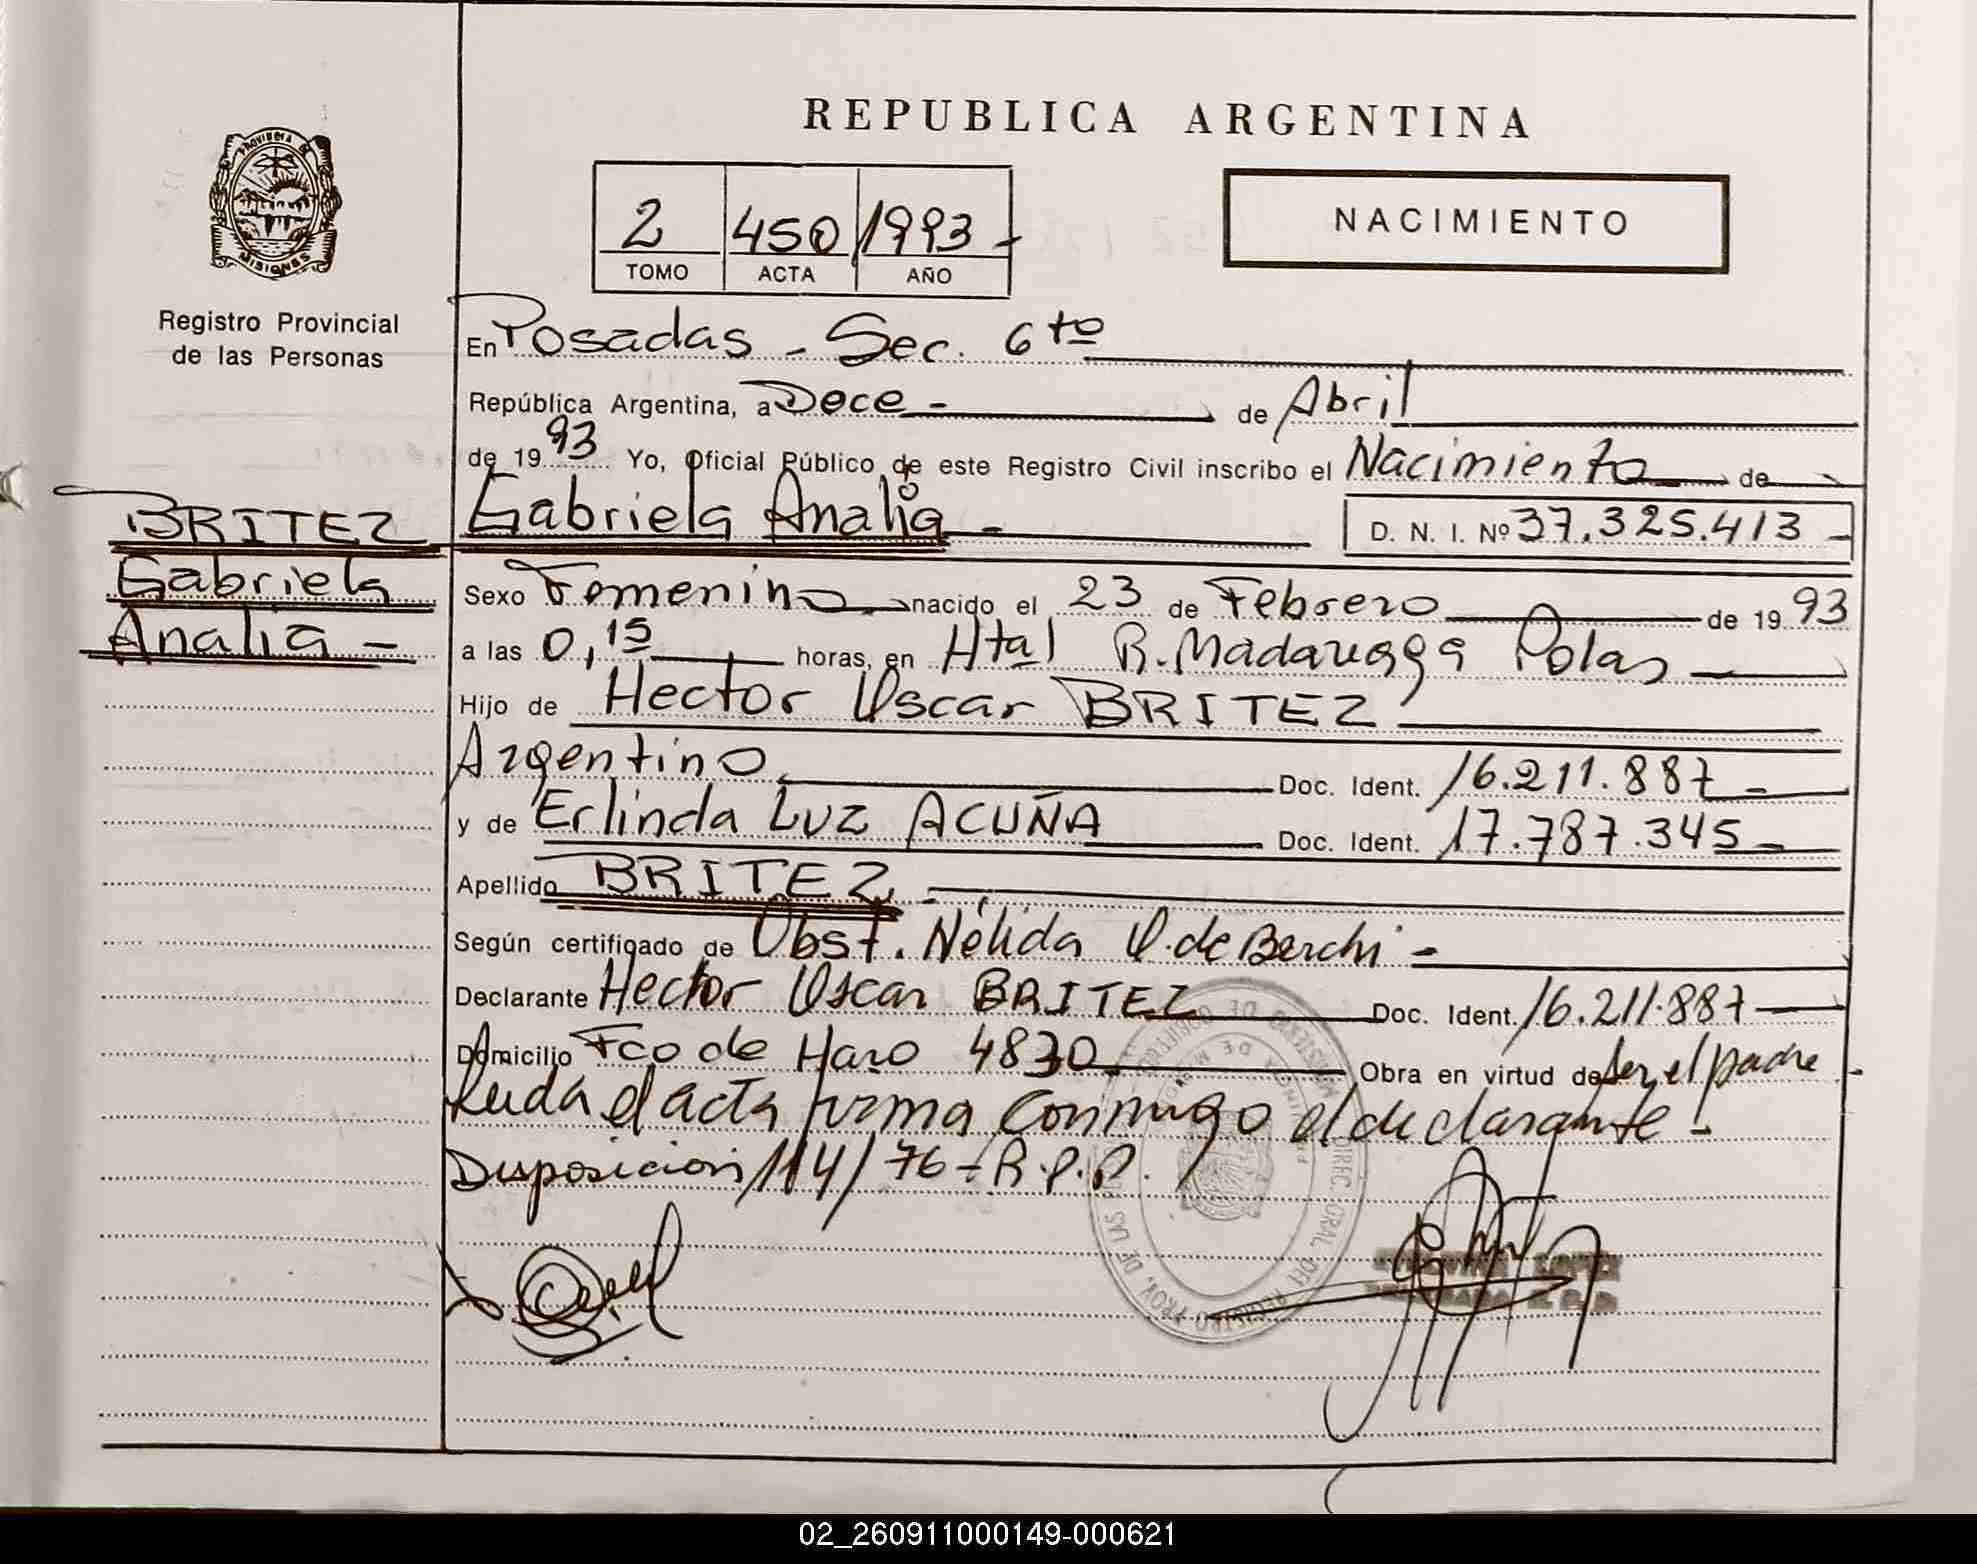 REPUBLICA ARGENTINA
PROVINCIA DE
MISIONES
2 450 1993 -
TOMO ACTA AÑO
NACIMIENTO
Registro Provincial
de las Personas
En Posadas - Sec. 6to
República Argentina, a Doce - de Abril
de 1993 Yo, Oficial Público de este Registro Civil inscribo el Nacimiento de
BRITEZ
Gabriela
Analia -
Gabriela Analia -
D. N. I. Nº 37.325.413 -
Sexo Femenino nacido el 23 de Febrero de 1993
a las 0,15 horas, en Htal R. Madariaga Pdas
Hijo de Hector Oscar BRITEZ
Argentino Doc. Ident. 16.211.887 -
y de Erlinda Luz ACUÑA Doc. Ident. 17.787.345 -
Apellido BRITEZ
Según certificado de Obst. Nélida de Berchi -
Declarante Hector Oscar BRITEZ Doc. Ident. 16.211.887
Domicilio Fco de Haro 4830 Obra en virtud de ser el padre
Leida el acta firma conmigo el declarante -
Disposicion 114/76 - R.P.P.
LOPEZ
02_260911000149-000621